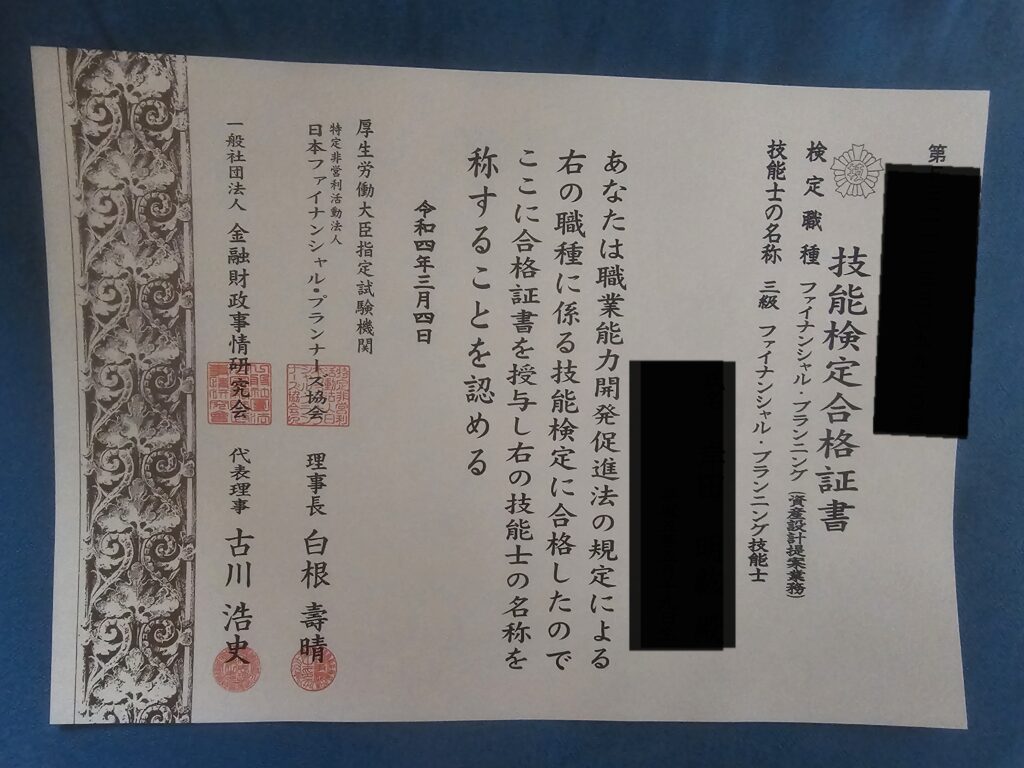 第
技能検定合格証書
検定職種 ファイナンシャル・プランニング(資産設計提案業務)
技能士の名称 三級 ファイナンシャル・プランニング技能士
あなたは職業能力開発促進法の規定による
右の職種に係る技能検定に合格したので
ここに合格証書を授与し右の技能士の名称を
称することを認める
令和四年三月四日
厚生労働大臣指定試験機関
特定非営利活動法人
日本ファイナンシャル・プランナーズ協会 理事長 白根 壽晴
一般社団法人 金融財政事情研究会 代表理事 古川 浩史